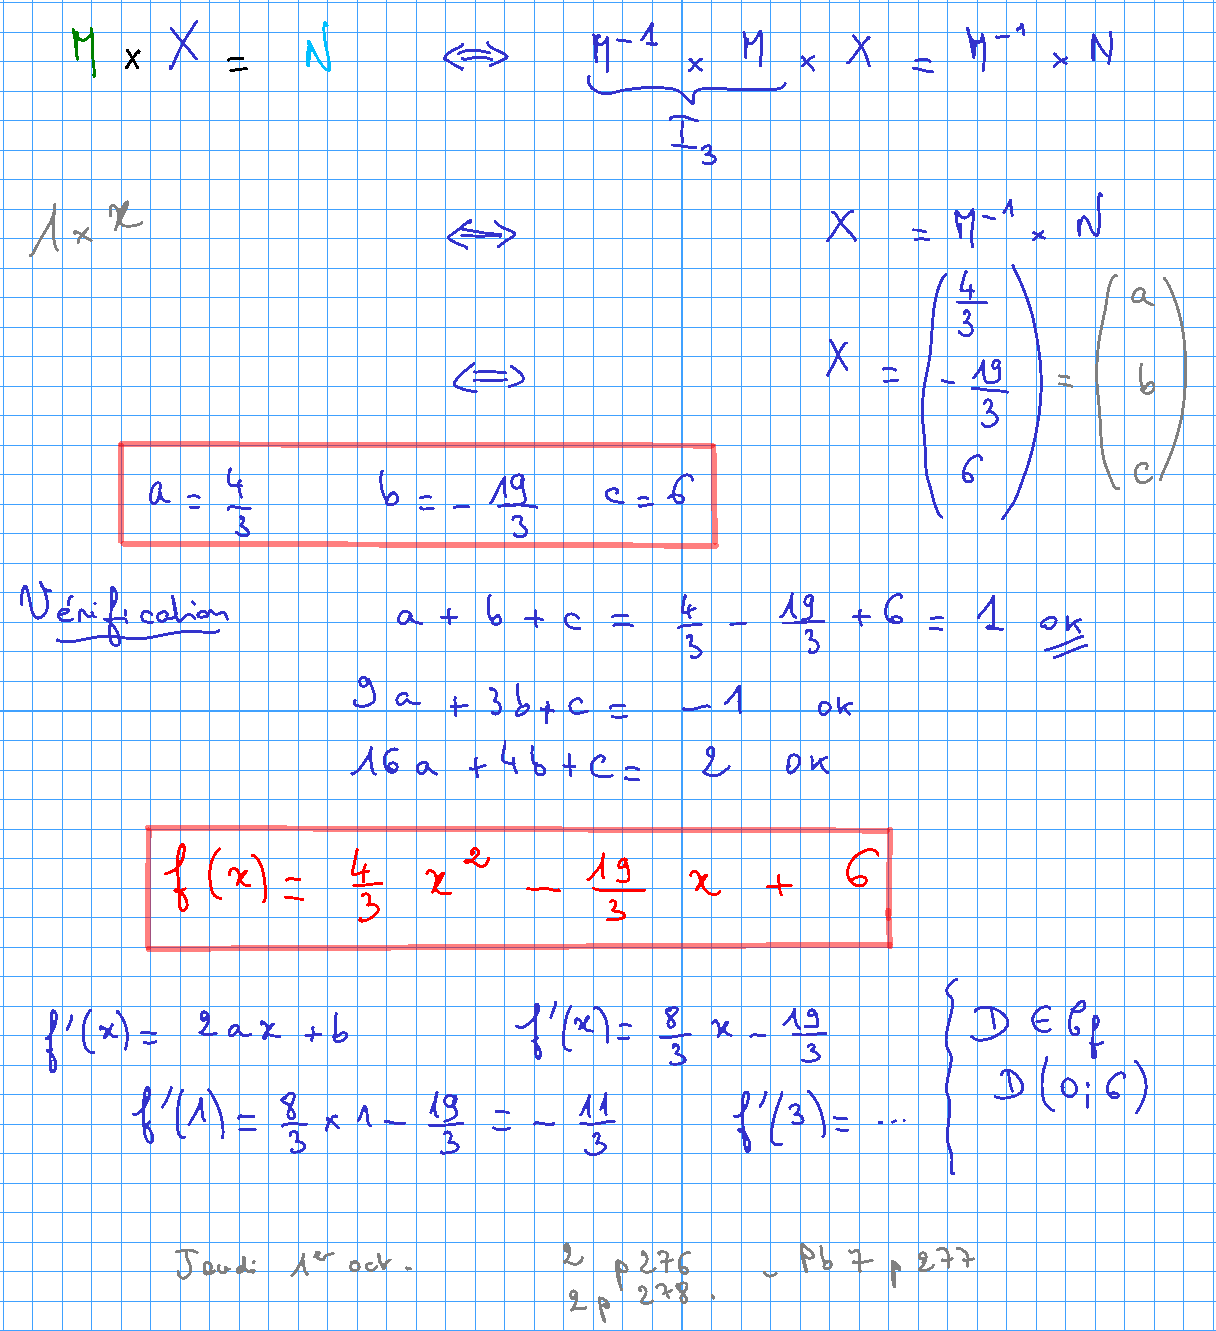 M × X = N ⟺ M⁻¹ × M × X = M⁻¹ × N
I₃
1 × x ⟺ X = M⁻¹ × N
⟺ X = (4/3 ; -19/3 ; 6) = (a ; b ; c)
a = 4/3 b = -19/3 c = 6
Vérification a + b + c = 4/3 - 19/3 + 6 = 1 OK
9a + 3b + c = -1 OK
16a + 4b + c = 2 OK
f(x) = 4/3 x² - 19/3 x + 6
f'(x) = 2ax + b f'(x) = 8/3 x - 19/3 D ∈ 𝒞f
D(0;6)
f'(1) = 8/3 × 1 - 19/3 = -11/3 f'(3) = ...
Jeudi 1er oct. 2 p 276 - Pb 7 p 277
2 p 278.